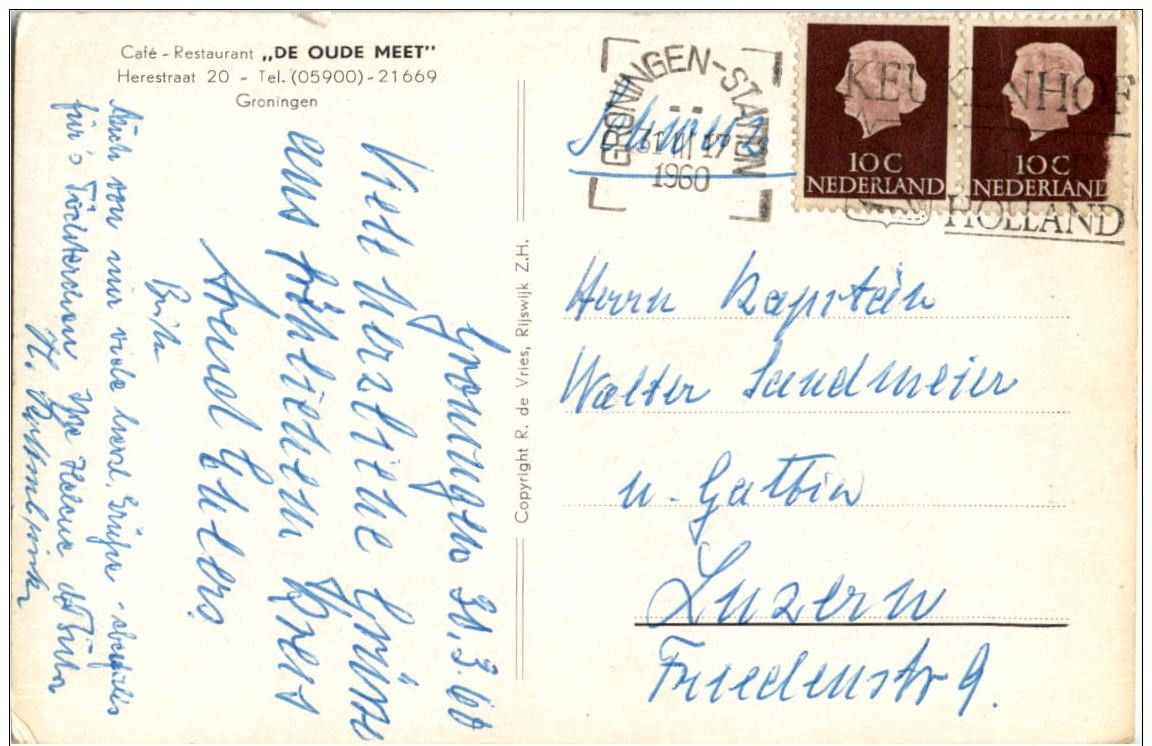 Café - Restaurant „DE OUDE MEET”
Herestraat 20 - Tel. (05900) - 21669
Groningen
Groningen 30.3.60
Viele herzliche Grüsse
aus fröhlichem Kreis
Arend Ehlers
Auch von mir viele herzl. Grüße - ebenfalls
für's Töchterchen
H.
Copyright R. de Vries, Rijswijk Z.H.
GRONINGEN-STATION
31 III 17
1960
KEUKENHOF
HOLLAND
10 C
NEDERLAND
10 C
NEDERLAND
Schweiz
Herrn Kapitän
Walter Sandmeier
u. Gattin
Luzern
Friedenstr 9.